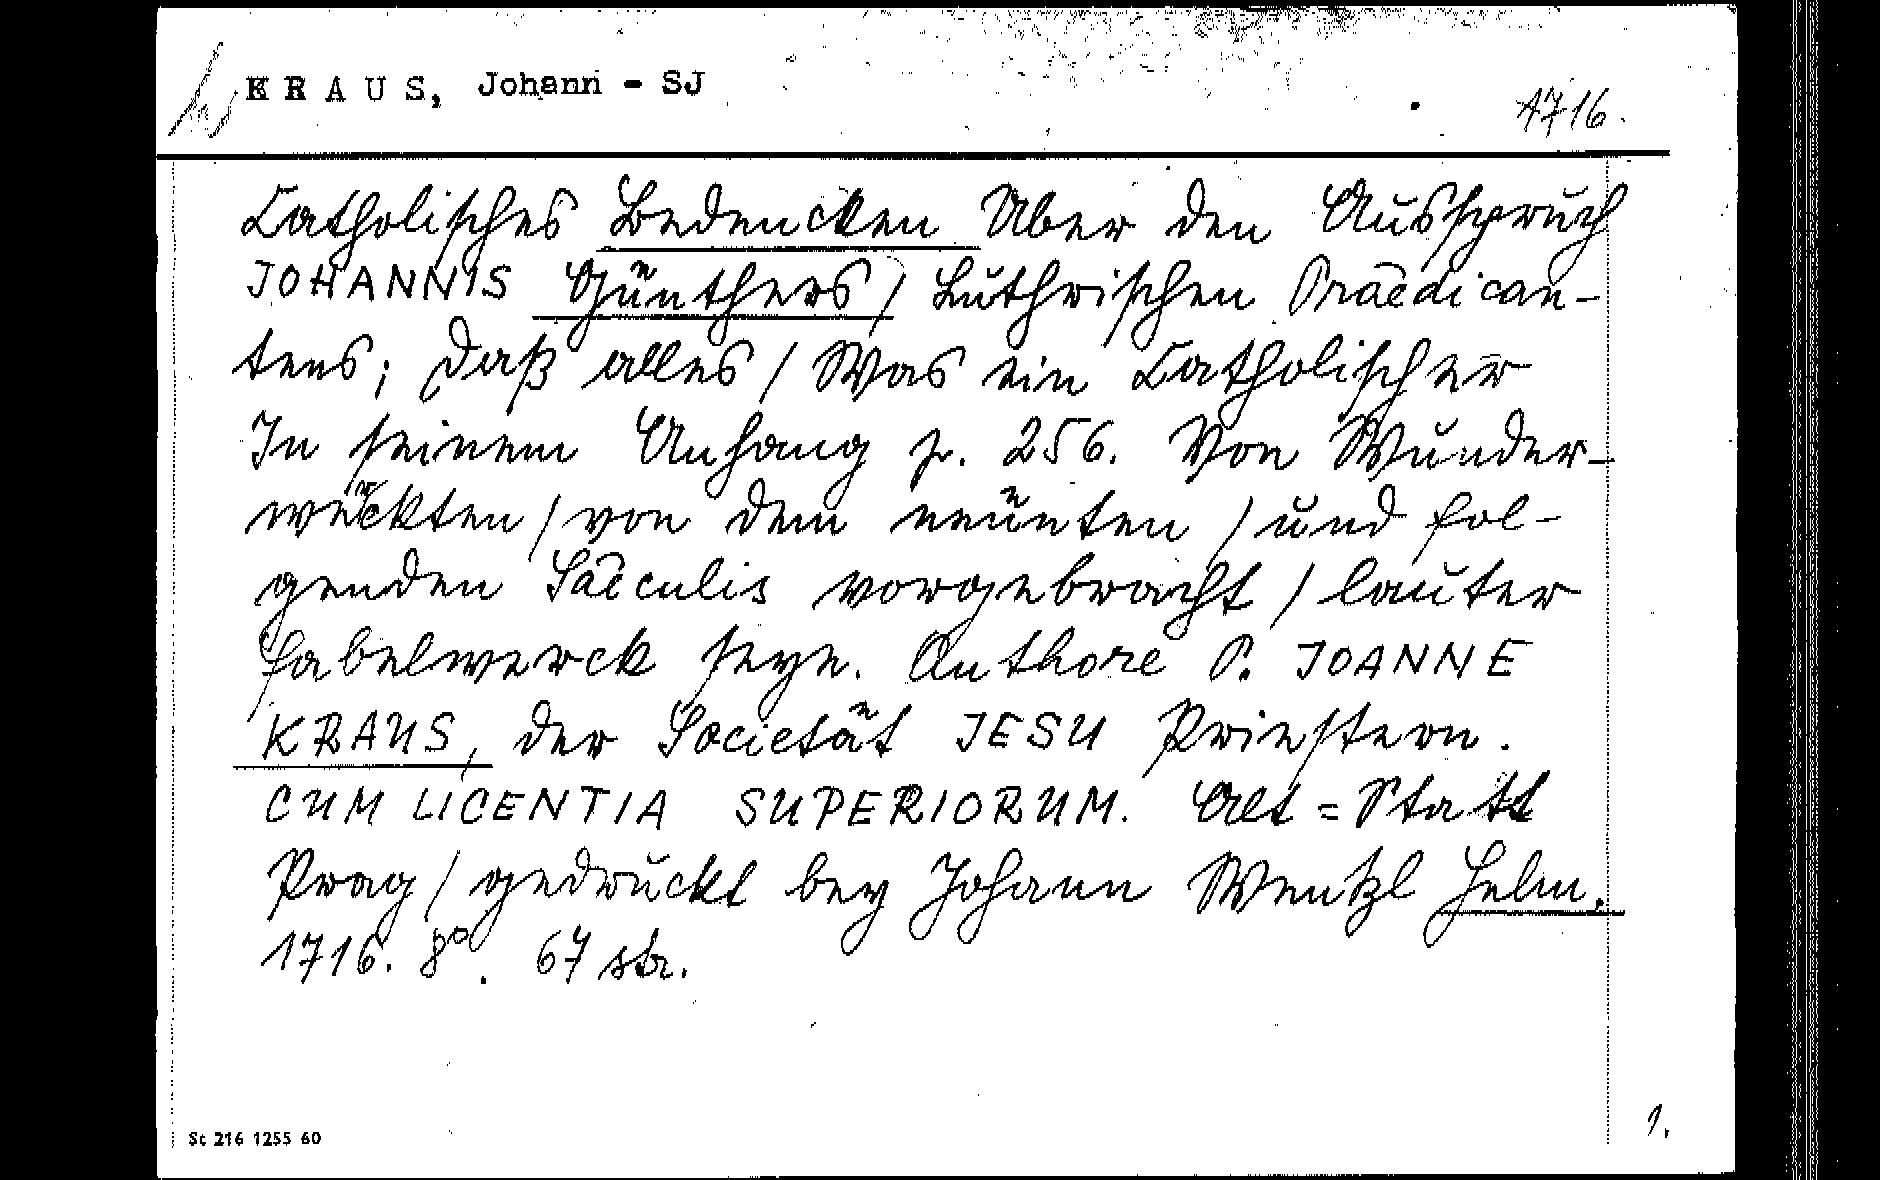 KRAUS, Johann - SJ
1716.
Catholisches Bedencken Uber den Ausspruch
JOHANNIS Günthers / Luthrischen Praedican-
tens; daß alles / Was ein Catholischer
In seinem Anhang p. 256. Von Wunder-
werckten / von dem neünten / und fol-
genden Saeculis vorgebracht / lauter
Fabelwerck seye. Authore P. JOANNE
KRAUS, der Societät JESU Priestern.
CUM LICENTIA SUPERIORUM. Alt=Statt
Prag / gedruckt bey Johann Wentzl Helm.
1716. 8°. 67 str.
St 216 1255 60
1.